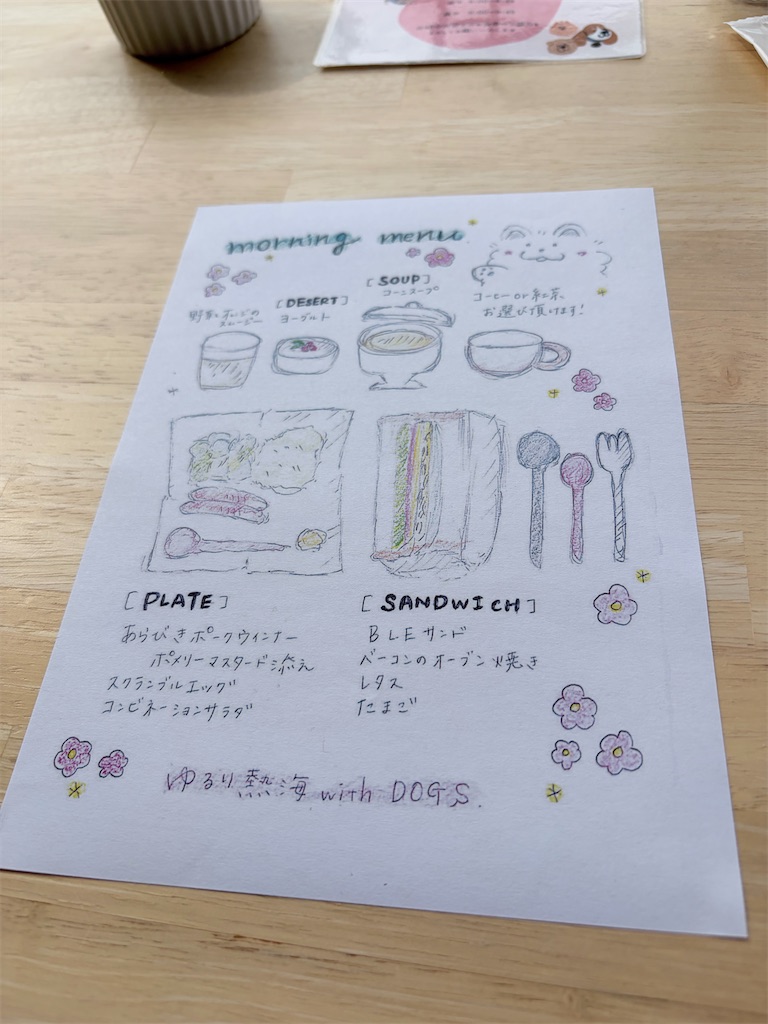 morning menu
[SOUP]
コーンスープ
[DESERT]
ヨーグルト
野菜とオレンジの
スムージー
コーヒー or 紅茶
お選び頂けます!
[PLATE]
あらびきポークウィンナー
ポメリーマスタード添え
スクランブルエッグ
コンビネーションサラダ
[SANDWICH]
BLEサンド
ベーコンのオーブン焼き
レタス
たまご
ゆるり熱海 with DOGS.